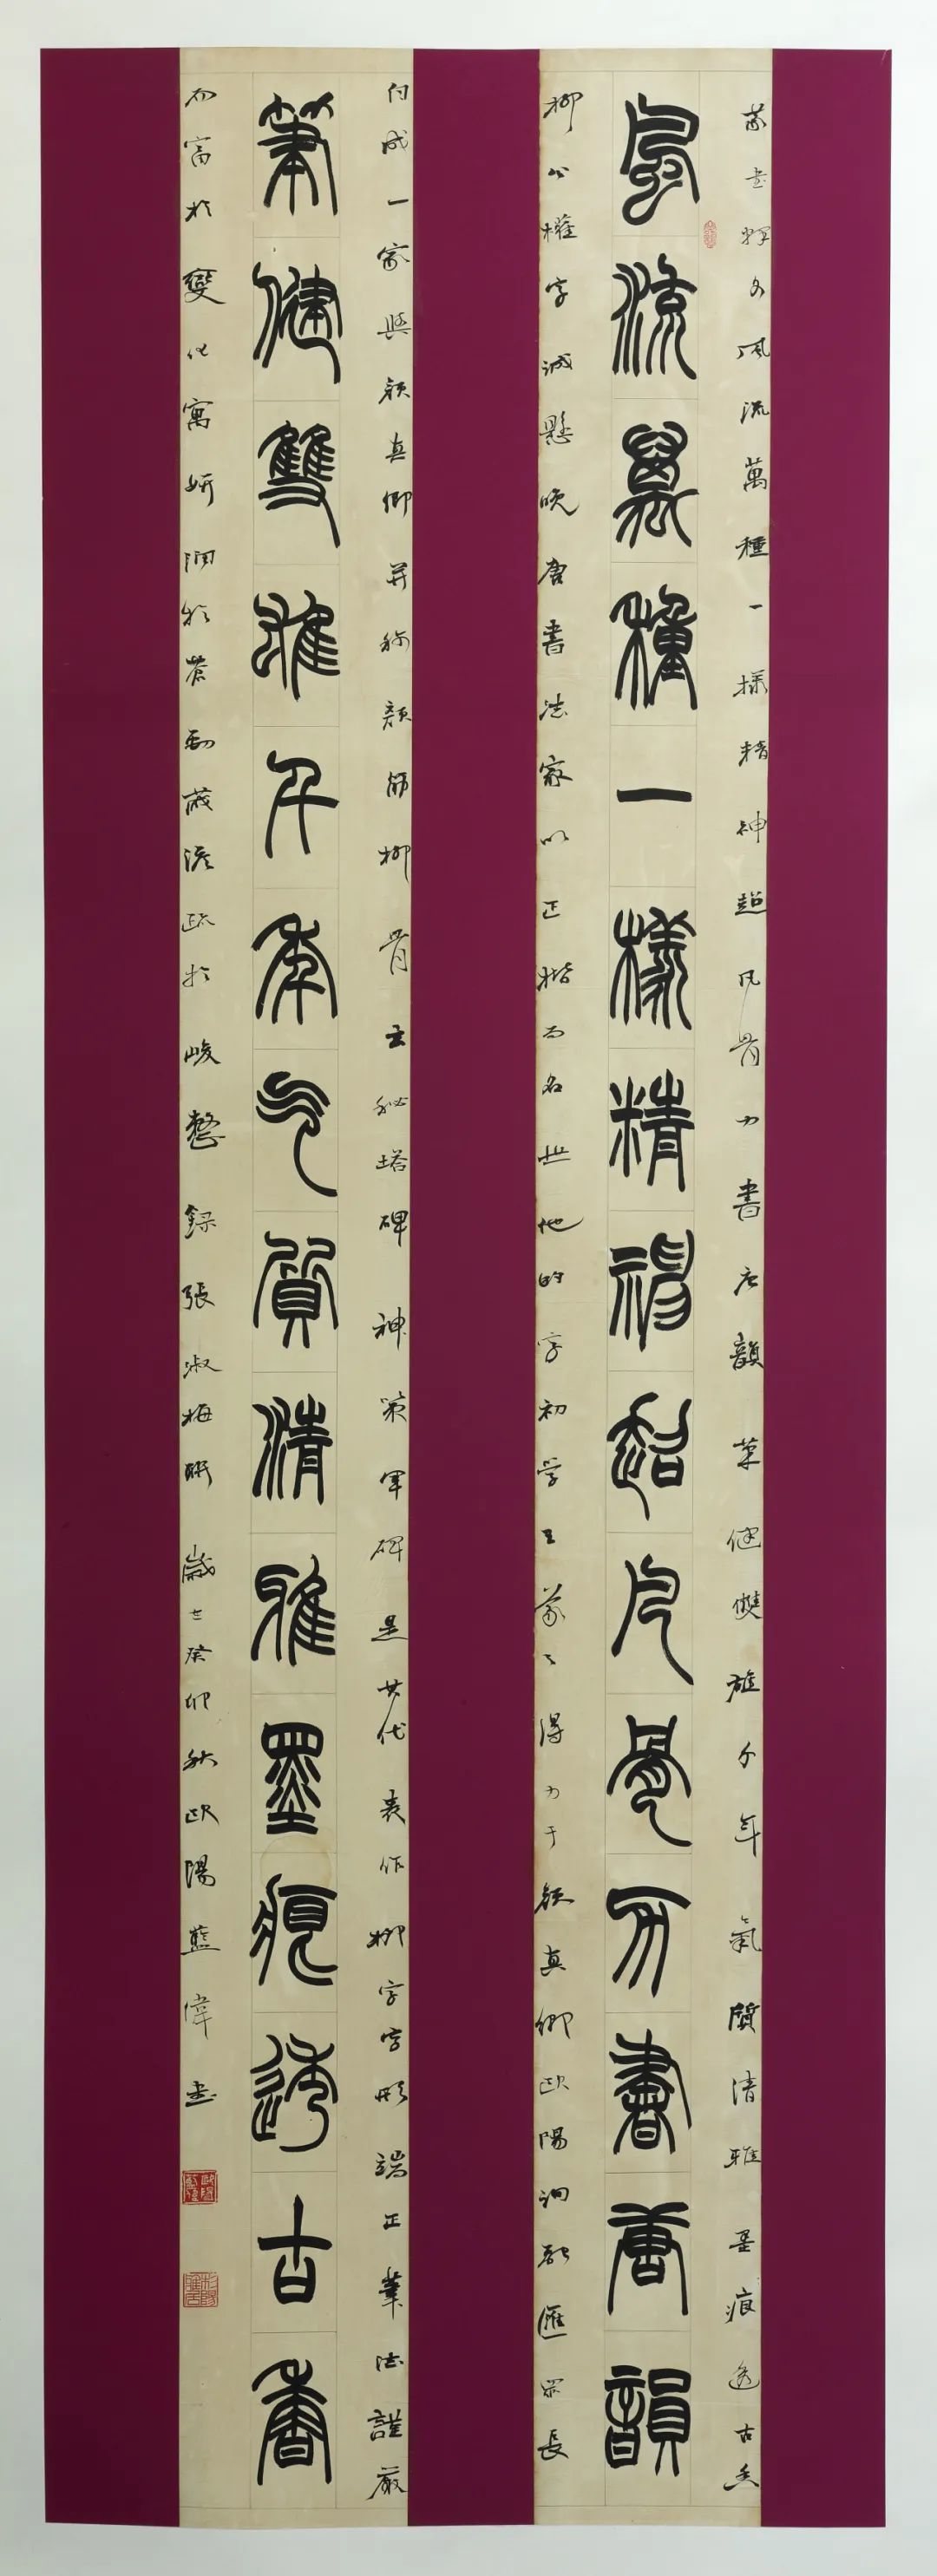 篆書釋文風流萬種一樣精神超凡骨力書唐韻筆健雙雄千年氣質清雅墨痕透古香
風流萬種一樣精神超凡骨力書唐韻
柳公權字誠懸晚唐書法家以正楷而名世他的字初学王羲之得力于顏真卿歐陽詢融匯眾長
自成一家與顏真卿并稱顏筋柳骨玄秘塔碑神策軍碑是其代表作柳字字形端正筆法謹嚴
筆健雙雄千年气質清雅墨痕透古香
而富於變化寓妍潤於蒼勁藏淡疏於峻整錄張淑梅聯歲在癸卯秋歐陽藍偉書